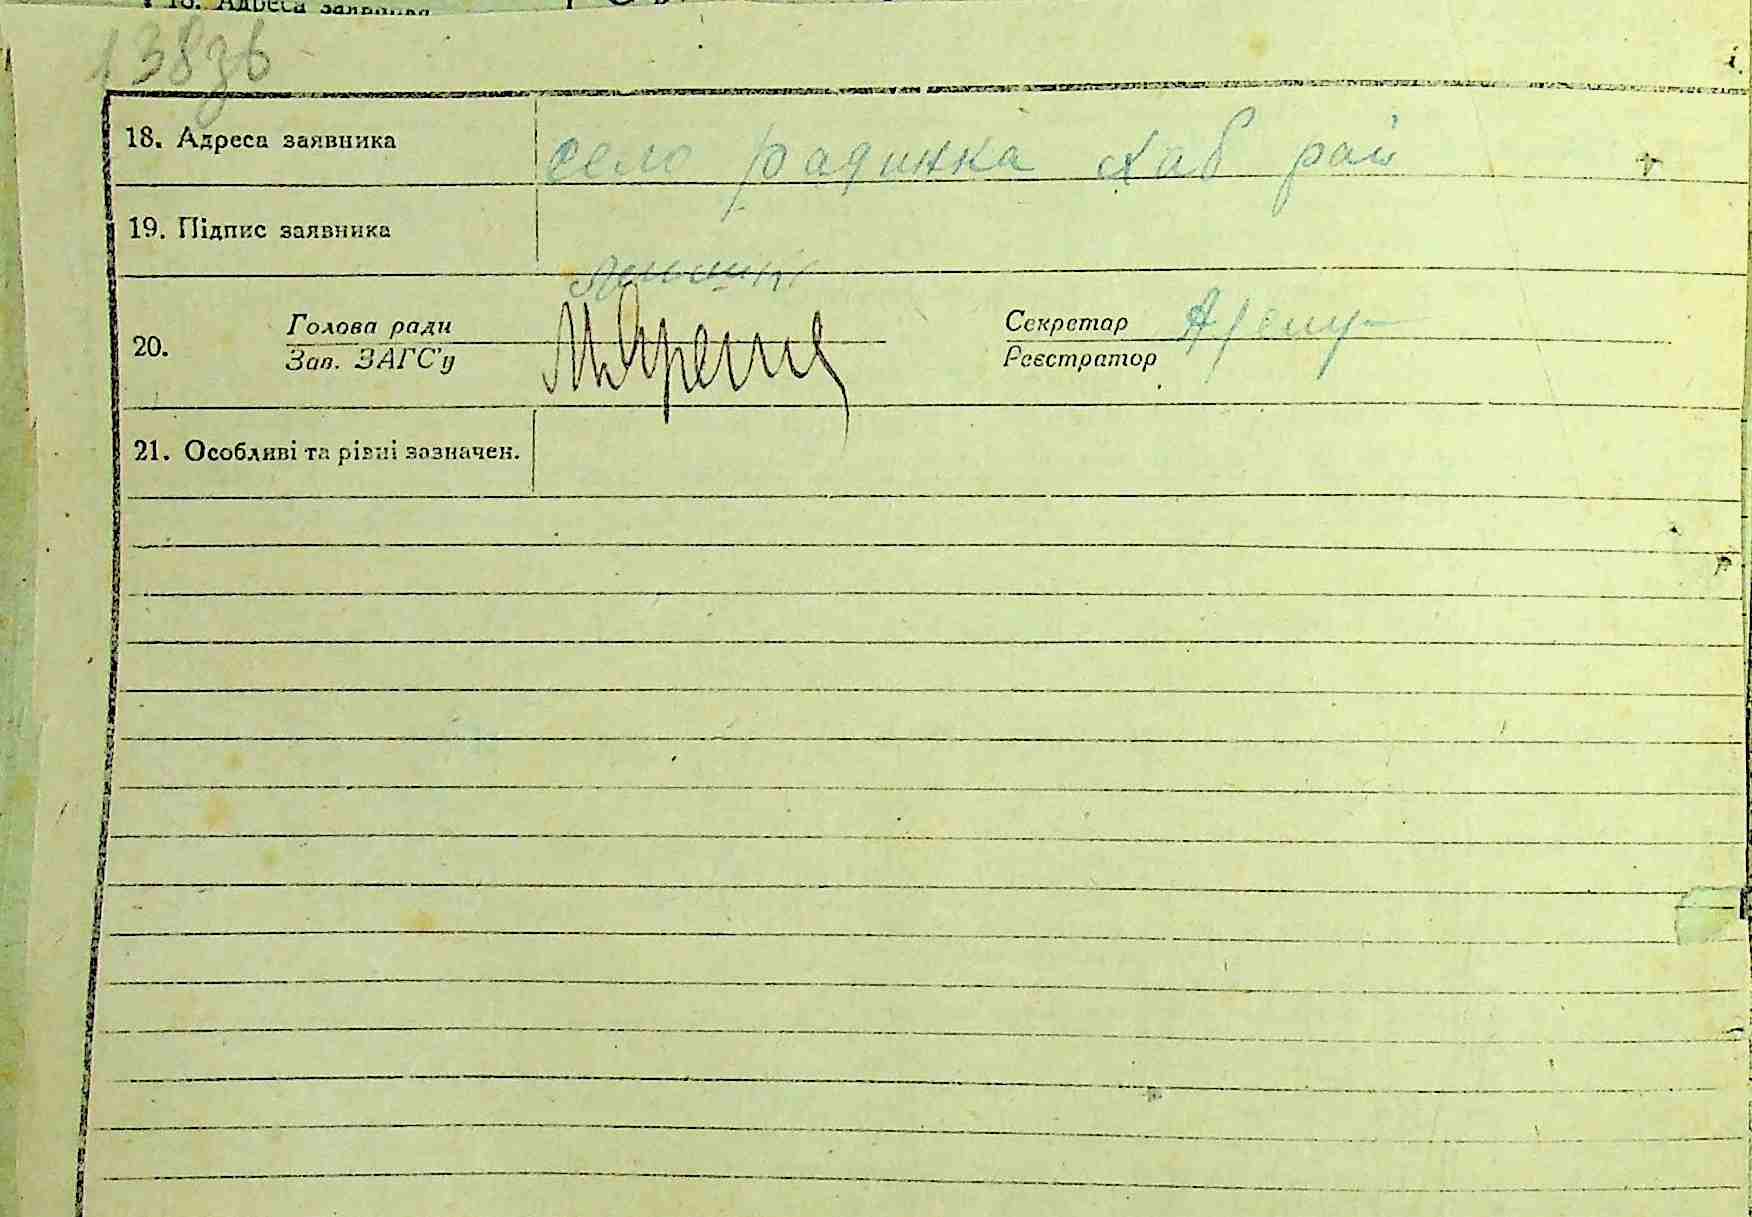 18. Адреса заявника
138зв
18. Адреса заявника село радинка хаб рай
19. Підпис заявника
20. Голова ради Секретар
Зав. ЗАГС'у Реєстратор
21. Особливі та різні зазначен.